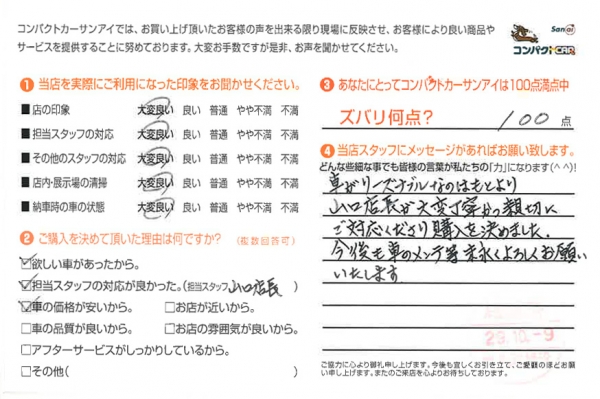 コンパクトカーサンアイでは、お買い上げ頂いたお客様の声を出来る限り現場に反映させ、お客様により良い商品や
サービスを提供することに努めております。大変お手数ですが是非、お声を聞かせてください。
Sanai
コンパクトCAR
1 当店を実際にご利用になった印象をお聞かせください。
■ 店の印象 大変良い 良い 普通 やや不満 不満
■ 担当スタッフの対応 大変良い 良い 普通 やや不満 不満
■ その他のスタッフの対応 大変良い 良い 普通 やや不満 不満
■ 店内・展示場の清掃 大変良い 良い 普通 やや不満 不満
■ 納車時の車の状態 大変良い 良い 普通 やや不満 不満
2 ご購入を決めて頂いた理由は何ですか? (複数回答可)
☑欲しい車があったから。
☑担当スタッフの対応が良かった。(担当スタッフ 山口店長 )
☑車の価格が安いから。 □お店が近いから。
□車の品質が良いから。 □お店の雰囲気が良いから。
□アフターサービスがしっかりしているから。
□その他( )
3 あなたにとってコンパクトカーサンアイは100点満点中
ズバリ何点? 100 点
4 当店スタッフにメッセージがあればお願い致します。
どんな些細な事でも皆様の言葉が私たちの「力」になります(^^)!
車がリーズナブルなのはもとより
山口店長が大変丁寧かつ親切に
ご対応くださり購入を決めました。
今後も車のメンテ等末永くよろしくお願い
いたします
29.10.-9
ご協力に心より御礼申し上げます。今後も宜しくお引き立て、ご愛顧のほどお願
い申し上げます。またのご来店を心よりお待ちしております。